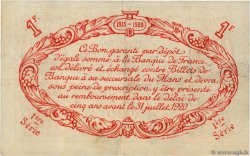 1F.
1915-1920
1F.
Ce Bon, garanti par dépôt
d'égale somme à la Banque de France,
est délivré et échangé contre Billets de
Banque à sa succursale du Mans et devra,
sous peine de prescription, y être présenté
au remboursement dans le délai de
cinq ans avant le 31 Juillet 1927
1ère
Série
1ère
Série